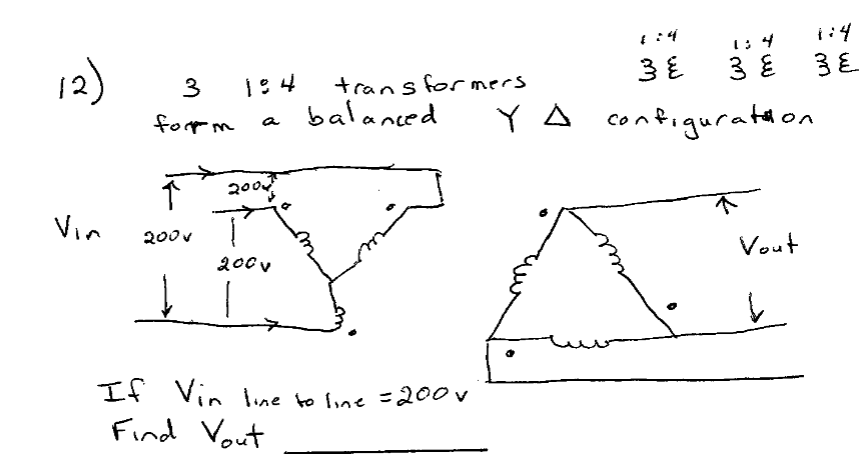 1:4 1:4 1:4
12) 3 1:4 transformers
form a balanced Y Δ configuration
200v
Vin 200v
200v
Vout
If Vin line to line = 200v
Find Vout